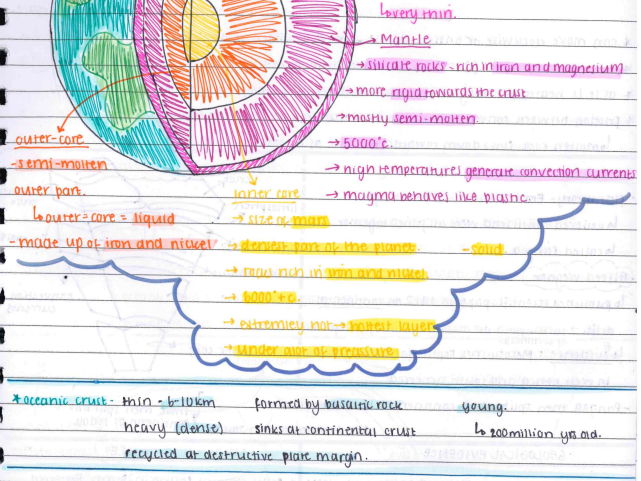 ↳very thin.
→ Mantle
→ silicate rocks - rich in iron and magnesium
→ more rigid towards the crust
→ mostly semi-molten.
→ 5000°c.
→ high temperatures generate convection currents
→ magma behaves like plastic.
outer-core
-semi-molten
outer part.
↳outer-core = liquid
-made up of iron and nickel
inner core
→ size of mars
→ densest part of the planet. -solid
→ rocks rich in iron and nickel
→ 6000°+c.
→ extremley hot → hottest layer
→ under alot of pressure
*oceanic crust - thin - 6-10km formed by basaltic rock young.
heavy (dense) sinks at continental crust ↳ 200million yrs old.
recycled at destructive plate margin.